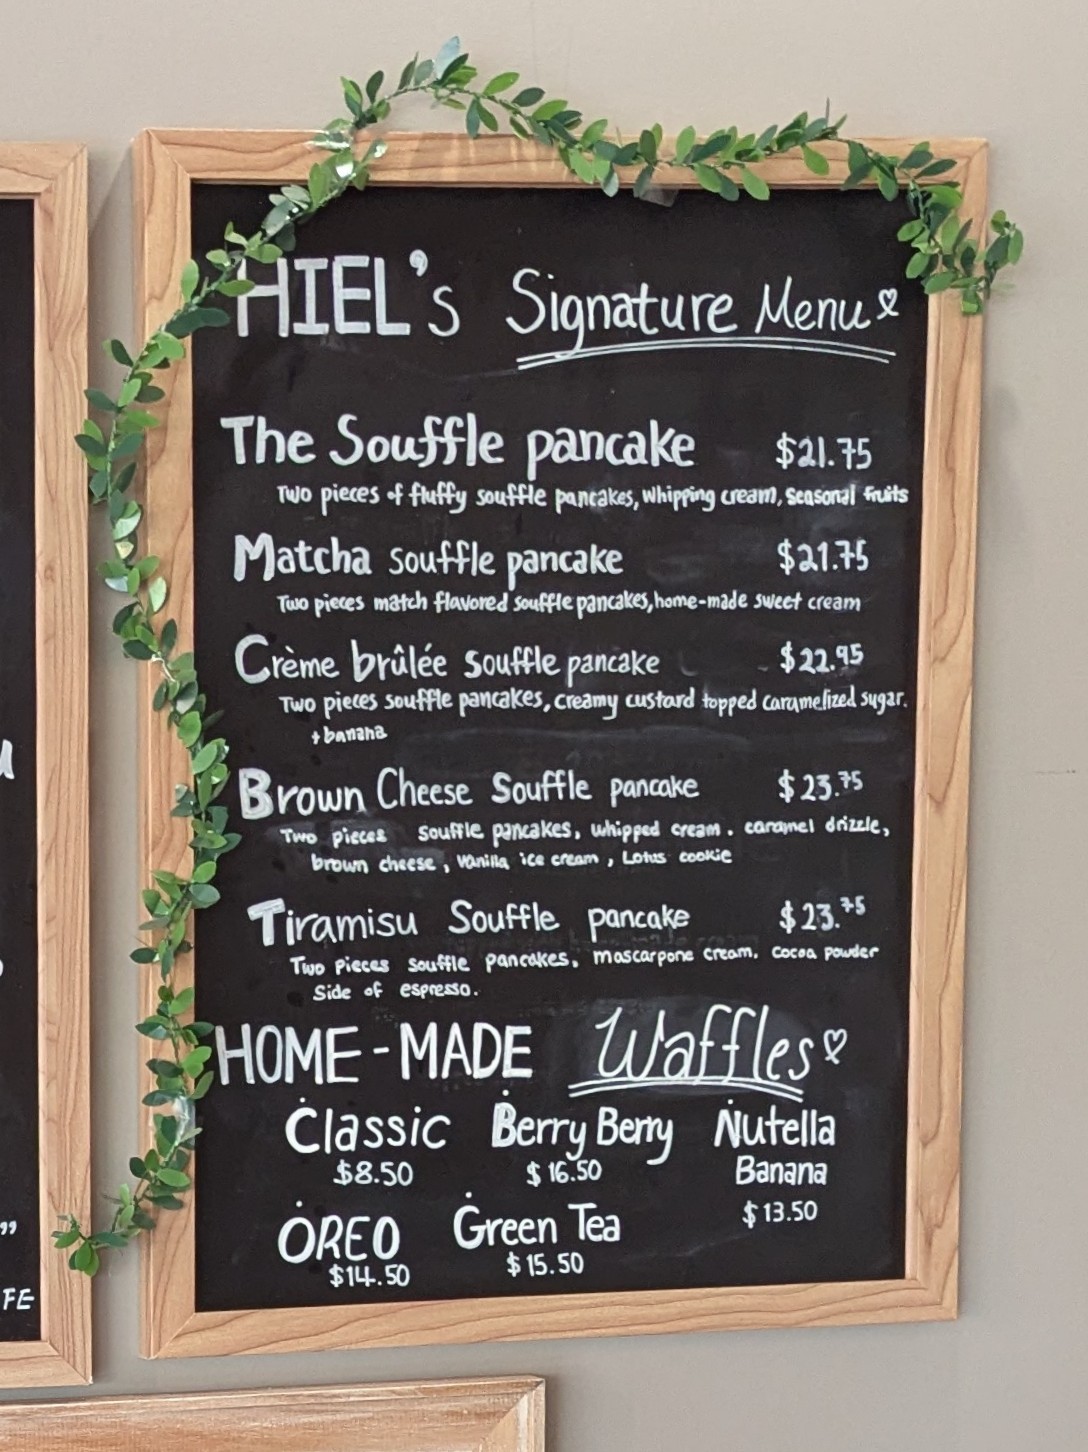 HIEL's Signature Menu
The Souffle pancake $21.75
Two pieces of fluffy souffle pancakes, whipping cream, seasonal fruits
Matcha souffle pancake $21.75
Two pieces match flavored souffle pancakes, home-made sweet cream
Crème brûlée souffle pancake $22.95
Two pieces souffle pancakes, creamy custard topped caramelized sugar.
+ banana
Brown Cheese Souffle pancake $23.75
Two pieces souffle pancakes, whipped cream. caramel drizzle,
brown cheese, vanilla ice cream, Lotus cookie
Tiramisu Souffle pancake $23.75
Two pieces souffle pancakes. mascarpone cream. cocoa powder
Side of espresso.
HOME-MADE Waffles
Classic
$8.50
Berry Berry
$16.50
Nutella
Banana
$13.50
OREO
$14.50
Green Tea
$15.50
”
FE